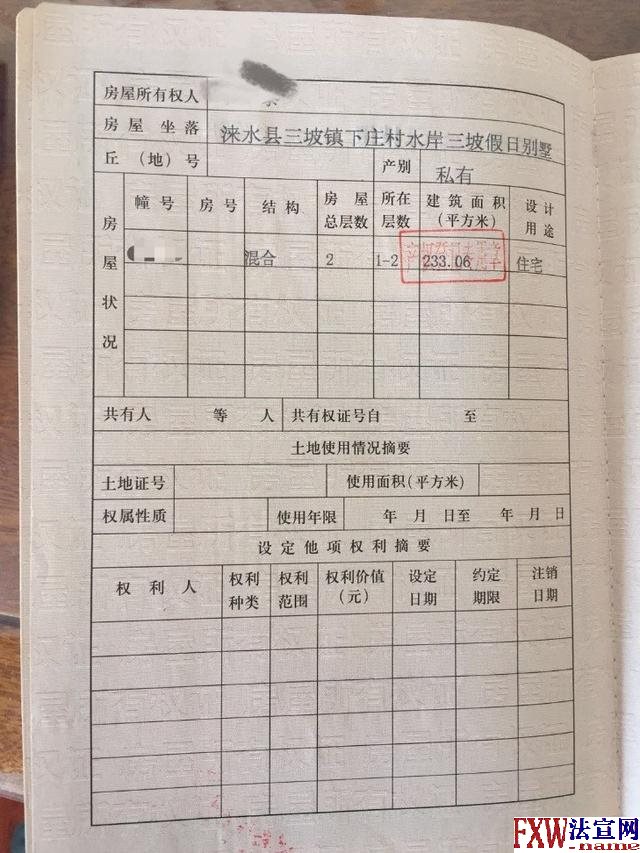 房屋所有权人
房屋坐落 涞水县三坡镇下庄村水岸三坡假日别墅
丘（地）号 产别 私有
房屋状况 幢号 房号 结构 房屋总层数 所在层数 建筑面积（平方米） 设计用途
混合 2 1-2 233.06 住宅
共有人 等 人 共有权证号自 至
土地使用情况摘要
土地证号 使用面积(平方米)
权属性质 使用年限 年 月 日至 年 月 日
设定他项权利摘要
权利人 权利种类 权利范围 权利价值（元） 设定日期 约定期限 注销日期
FXW法宣网
-name